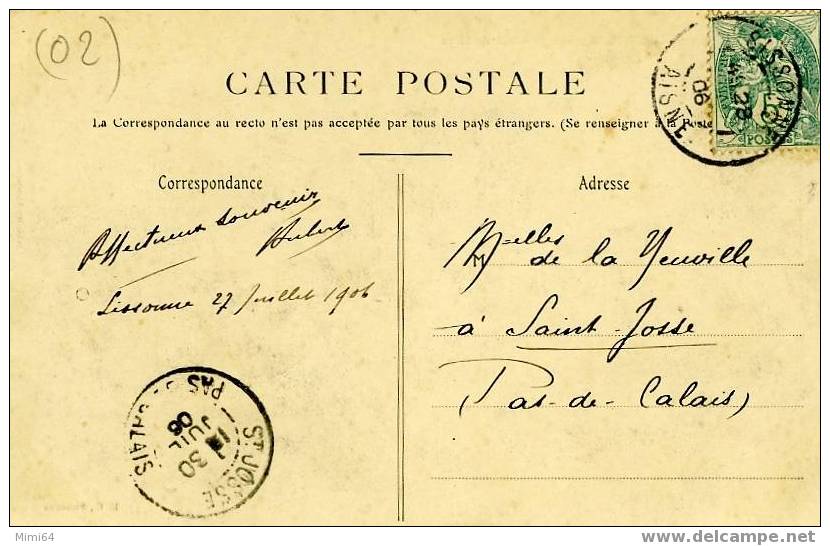 (02)
CARTE POSTALE
La Correspondance au recto n'est pas acceptée par tous les pays étrangers. (Se renseigner à la Poste
Correspondance
Affectueux souvenir
Hubert
Sissonne 27 Juillet 1906
Adresse
Melles de la Neuville
à Saint-Josse
(Pas-de-Calais)
SISSONNE
28
06
AISNE
5
POSTES
ST JOSSE
30
JUIL
06
PAS DE CALAIS
Mimi64
delcampe.net